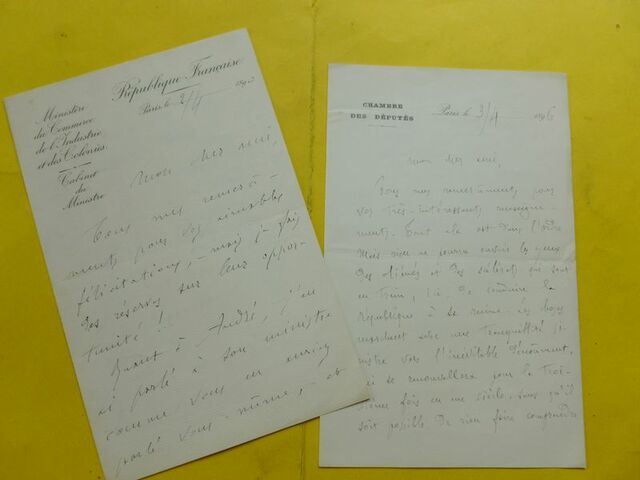 République Française
Ministère
du Commerce
de l'Industrie
et des Colonies.
Cabinet
du
Ministre
Paris, le 2/4 1893
Mon cher ami,
Tous mes remercî-
ments pour vos aimables
félicitations, – mais je fais
des réserves sur leur oppor-
tunité !
Quant à André, j'en
ai parlé à son ministre
comme vous en auriez
parlé vous-même, et
CHAMBRE
DES DÉPUTÉS
Paris, le 3/4 1896
mon cher ami,
Tous mes remercîments pour
vos très-intéressants renseigne-
ments. Tout cela est dans l'ordre
mais nous ne pourrons ouvrir les yeux
des et des qui sont
en train, ici, de conduire la
république à sa ruine. Les
marchent avec une tranquillité si-
nistre vers l'inévitable dénouement,
qui se renouvellera pour la troi-
sième fois en un siècle, sans qu'il
soit possible de rien faire comprendre